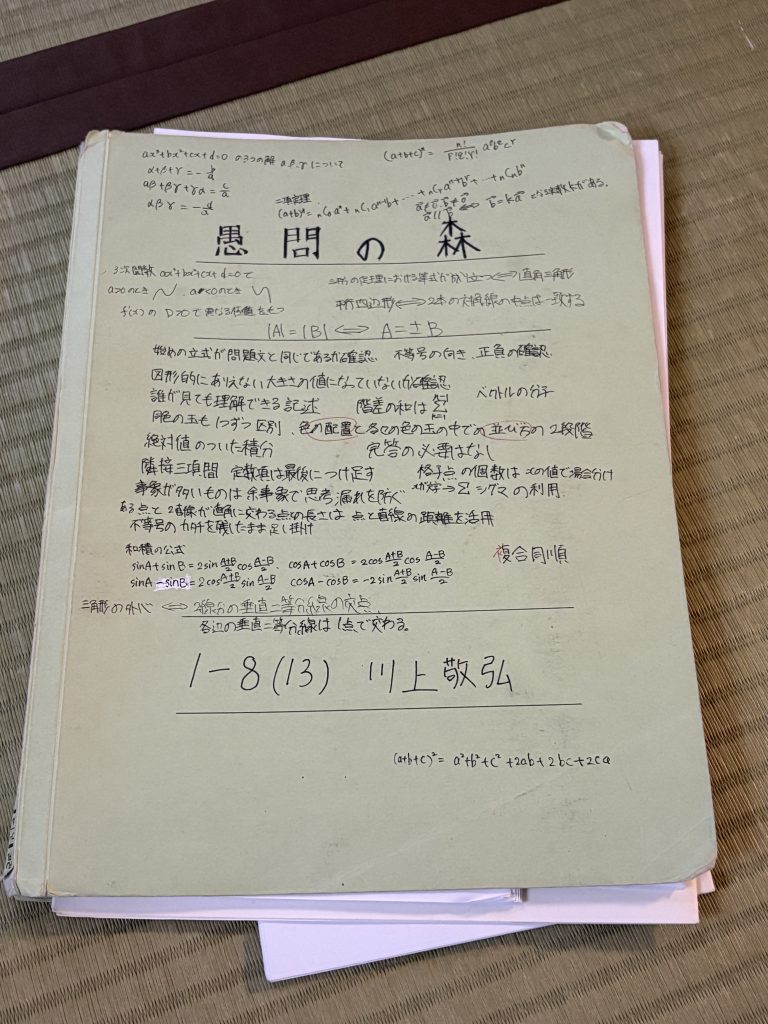 ax³+bx²+cx+d=0 の3つの解 α,β,γ について
α+β+γ=-b/a
αβ+βγ+γα=c/a
αβγ=-d/a
(a+b+c)ⁿ= n!/p!q!r! aᵖbᵍcʳ
二項定理
(a+b)ⁿ=ₙC₀aⁿ+ₙC₁aⁿ⁻¹b+…+ₙCᵣaⁿ⁻ʳbʳ+…+ₙCₙbⁿ
a≠0, b≠0
a∥b ⇔ b=ka となる実数kがある。
愚問の森
3次関数 ax³+bx²+cx+d=0で
a>0のとき a<0のとき
f(x)の D>0で異なる極値をもつ
三平方の定理における等式が成り立つ⇔直角三角形
平行四辺形⇔2本の対角線の中点は一致する
|A|=|B|⇔A=±B
始めの立式が問題文と同じであるか確認 不等号の向き、正負の確認
図形的にありえない大きさの値になっていないか確認
誰が見ても理解できる記述 階差の和はΣ ベクトルの分子
同色の玉も1つずつ区別、色の配置とその色の玉の中での並び方の2段階
絶対値のついた積分 完答の必要はなし
隣接三項間 定数項は最後につけ足す 格子点の個数はxの値で場合分け
事象が多いものは余事象で思考漏れを防ぐ xが文字→Σシグマの利用
ある点と2直線が直角に交わる点の長さは 点と直線の距離を活用
不等号のカタチを残したまま足し掛け
和積の公式
sinA+sinB=2sin A+B/2 cos A-B/2、cosA+cosB=2cos A+B/2 cos A-B/2
sinA-sinB=2cos A+B/2 sin A-B/2 cosA-cosB=-2sin A+B/2 sin A-B/2
複合同順
三角形の外心⇔2線分の垂直二等分線の交点
各辺の垂直二等分線は1点で交わる。
1-8(13) 川上敬弘
(a+b+c)²=a²+b²+c²+2ab+2bc+2ca